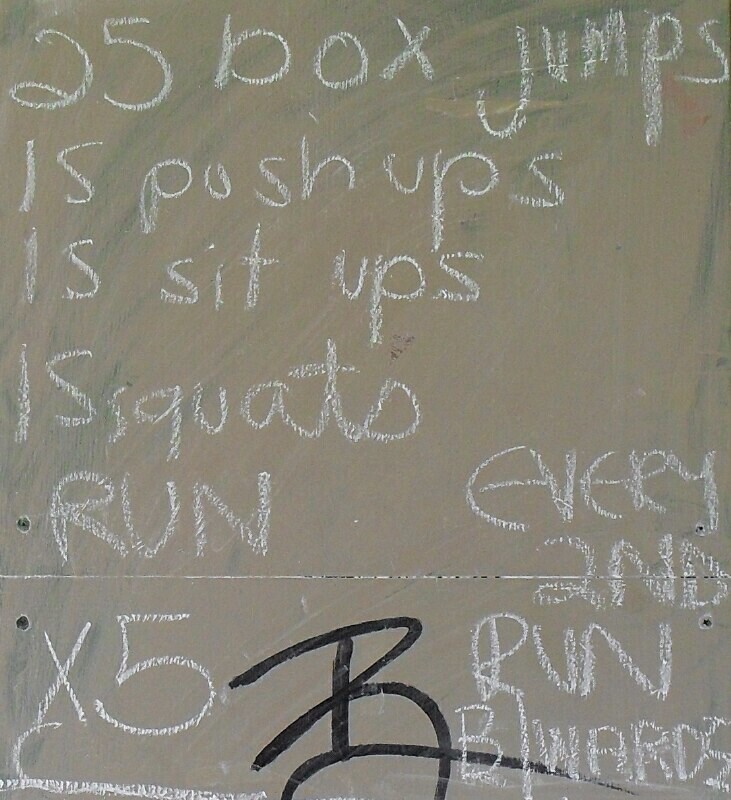 25 box jumps
15 push ups
15 sit ups
15 squats
RUN
X5
EVERY
2ND
RUN
B/WARDS